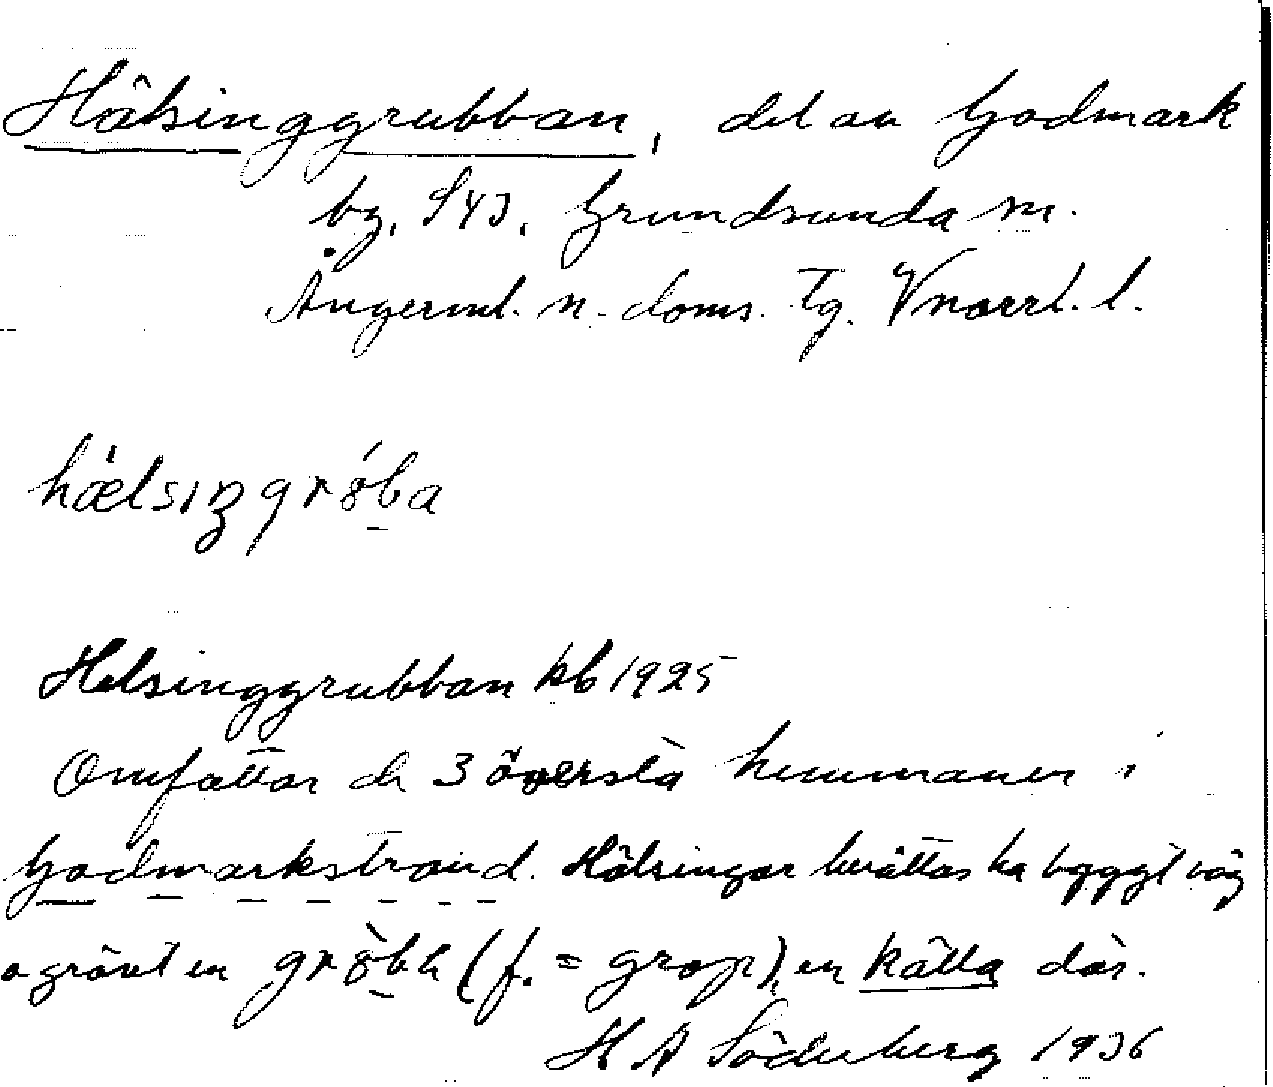 Hälsinggrubban, del av Godmark
by, S43, Grundsunda sn.
Ångerml. n. doms. tg. Vnorrl. l.
hælsıŋgrȣba
Helsinggrubban kb 1925
Omfattar de 3 översta hemmanen i
Godmarkstrand. Hälsingar berättas ha byggt väg
o grävt en grȣbb (f. = grop), en källa där.
H A Söderberg 1936